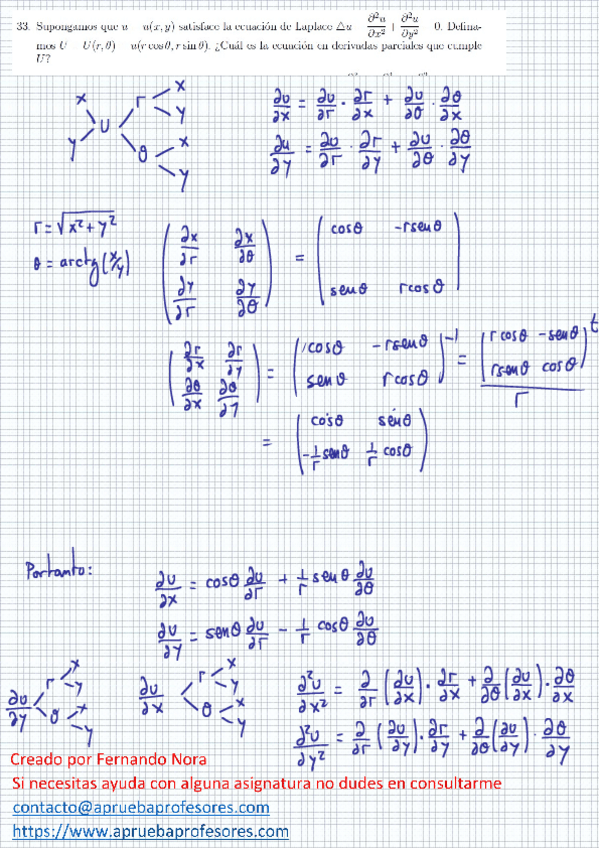 33. Supongamos que u = u(x, y) satisface la ecuación de Laplace △u = ∂²u/∂x² + ∂²u/∂y² = 0. Defina-
mos U = U(r, θ) = u(r cos θ, r sin θ). ¿Cuál es la ecuación en derivadas parciales que cumple
U?
x y U r x y θ x y
∂u/∂x = ∂u/∂r · ∂r/∂x + ∂u/∂θ · ∂θ/∂x
∂u/∂y = ∂u/∂r · ∂r/∂y + ∂u/∂θ · ∂θ/∂y
r = √(x² + y²)
θ = arctg(x/y)
(∂x/∂r ∂x/∂θ ; ∂y/∂r ∂y/∂θ) = (cosθ -rsenθ ; senθ rcosθ)
(∂r/∂x ∂r/∂y ; ∂θ/∂x ∂θ/∂y) = (cosθ -rsenθ ; senθ rcosθ)⁻¹ = (rcosθ -senθ ; rsenθ cosθ)ᵗ / r
= (cosθ senθ ; -1/r senθ 1/r cosθ)
Portanto:
∂u/∂x = cosθ ∂u/∂r + 1/r senθ ∂u/∂θ
∂u/∂y = senθ ∂u/∂r - 1/r cosθ ∂u/∂θ
∂u/∂y r x y θ x y
∂u/∂x r x y θ x y
∂²u/∂x² = ∂/∂r (∂u/∂x) · ∂r/∂x + ∂/∂θ (∂u/∂x) · ∂θ/∂x
∂²u/∂y² = ∂/∂r (∂u/∂y) · ∂r/∂y + ∂/∂θ (∂u/∂y) · ∂θ/∂y
Creado por Fernando Nora
Si necesitas ayuda con alguna asignatura no dudes en consultarme
contacto@apruebaprofesores.com
https://www.apruebaprofesores.com